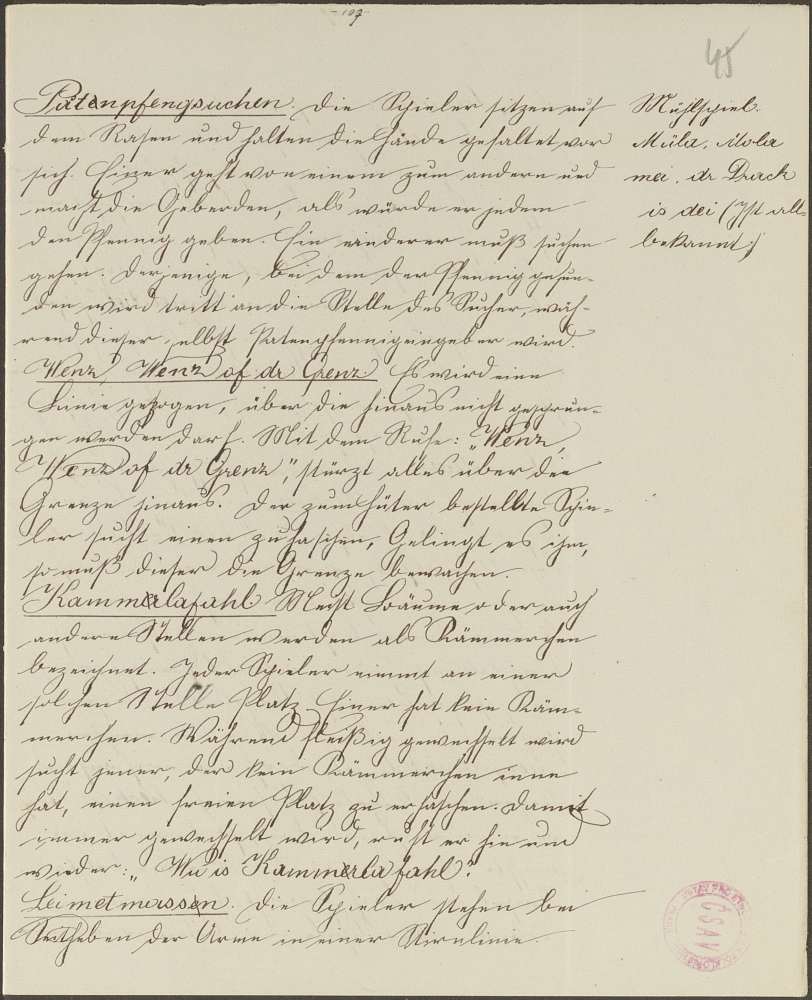 - 107 -
45
Patenpfengsuchen. Die Spieler sitzen auf
dem Rasen und halten die Hände gefaltet vor
sich. Einer geht von einem zum andern und
macht die Geberden, als würde er jedem
den Pfennig geben. Ein anderer muß suchen
gehen. Derjenige, bei dem der Pfennig gefun-
den wird tritt an die Stelle des Sucher, wäh-
rend dieser selbst Patenpfennigeingeber wird.
Wenz, Wenz of dr Grenz. Es wird eine
Linie gezogen, über die hinaus nicht gesprun-
gen werden darf. Mit dem Rufe: „Wenz,
Wenz of dr Grenz", stürzt alles über die
Grenze hinaus. Der zum Hüter bestellte Spie-
ler sucht einen zu haschen, Gelingt es ihm,
so muß dieser die Grenze bewachen.
Kammerlafahl. Meist Bäume oder auch
andere Stellen werden als Kämmerchen
bezeichnet. Jeder Spieler nimmt an einer
solchen Stelle Platz. Einer hat kein Käm-
merchen. Während fleißig gewechselt wird
sucht jener, der kein Kämmerchen inne
hat, einen freien Platz zu erhaschen. Damit
immer gewechselt wird, ruft er hie und
wieder: „Wu is Kammerla fahl?
Leimetmassen. Die Spieler stehen bei
der Arme in einer Stirnlinie.
Mühlspiel.
Müla, Mola
mei, dr Dreck
is dei (Ist all-
bekannt.)
ČSAV